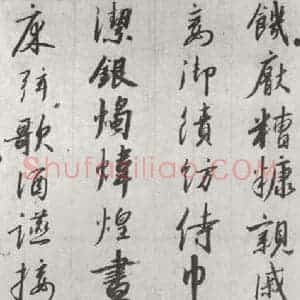 饑厭糟糠親戚
妾御績紡侍巾
潔銀燭煒煌晝
床弦歌酒讌接
Shufaziliao.COM